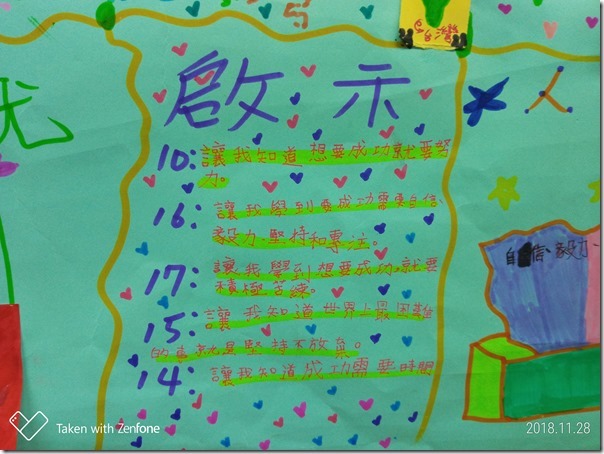 啟示
人
10:讓我知道想要成功就要努
力。
16:讓我學到要成功需要自信、
毅力、堅持和專注。
17:讓我學到想要成功,就要
積極苦練。
15:讓我知道世界上最困難
的事就是堅持不放棄。
14:讓我知道成功需要時間
自信、毅力、
Taken with Zenfone
2018.11.28